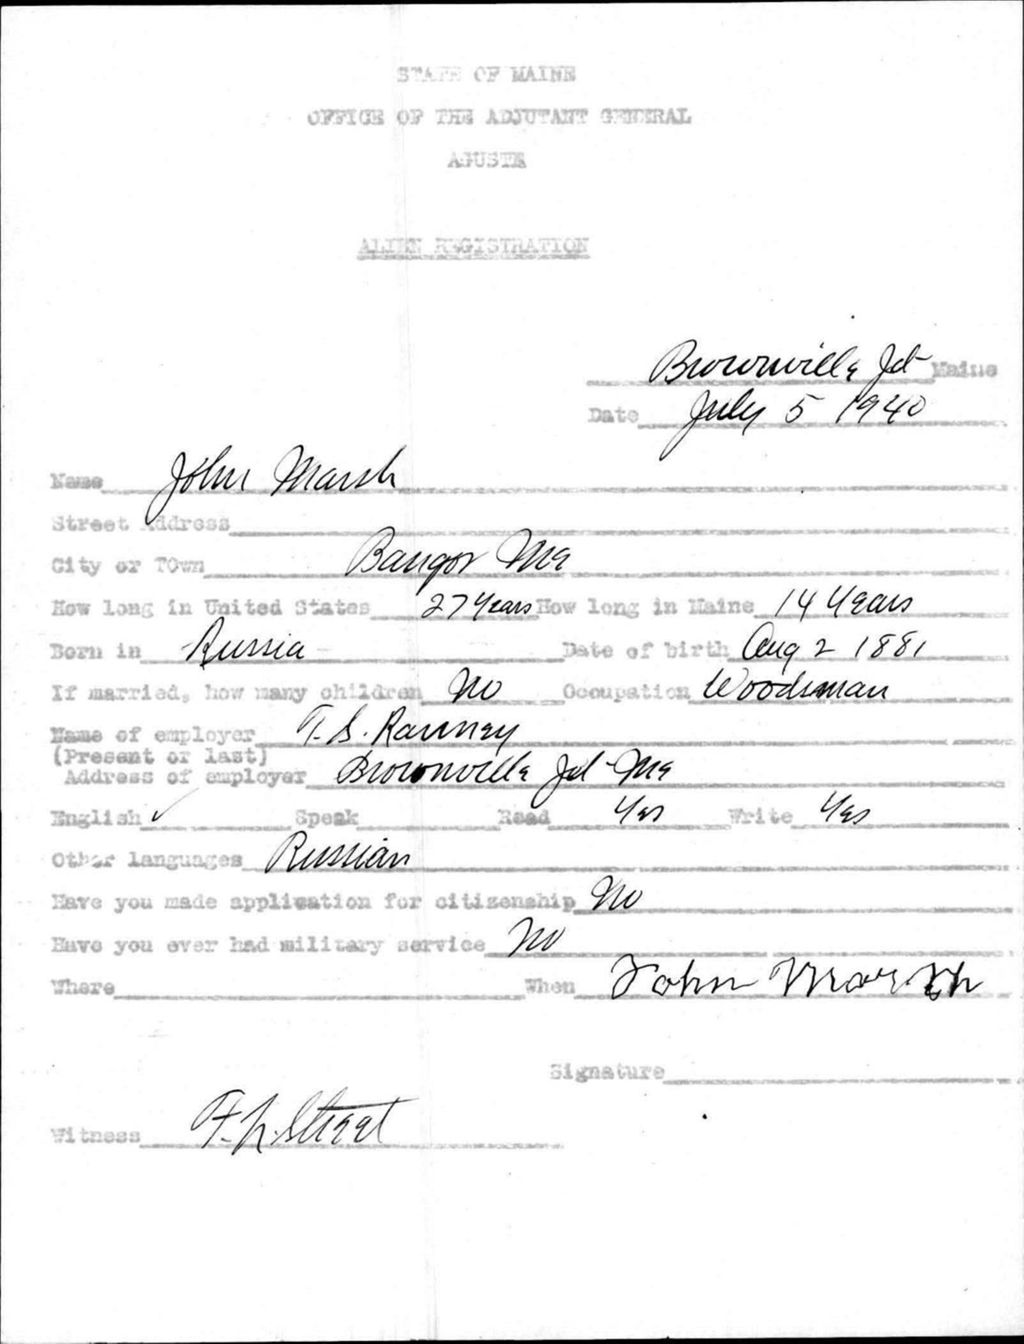 STATE OF MAINE
OFFICE OF THE ADJUTANT GENERAL
AGUSTA
ALIEN REGISTRATION
Brownville Jct Maine
Date July 5 1940
Name John Marsh
Street Address
City or TOwn Bangor Me
How long in United States 27 Years How long in Maine 14 Years
Born in Russia Date of birth Aug 2 1881
If married, how many children No Occupation Woodsman
Name of employer T. S. Ranney
(Present or last)
Address of employer Brownville Jct Me
English ✓ Speak Read Yes Write Yes
Other languages Russian
Have you made application for citizenship No
Have you ever had military service No
Where When John Marsh
Signature
Witness F. L. Street